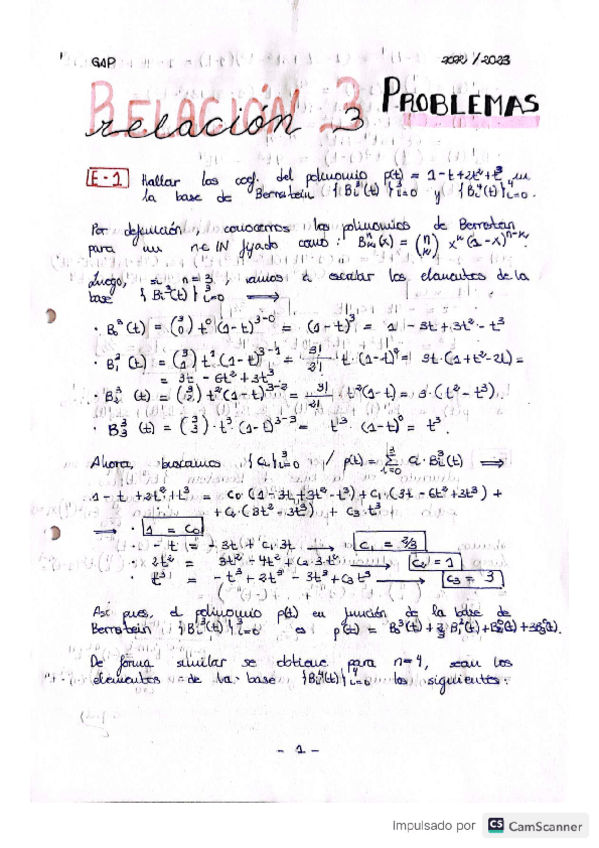 GAP 2022/2023
RELACIÓN 3 PROBLEMAS
relación 3
E-1 Hallar los coef. del polinomio p(t) = 1-t+2t²+t³ en
la base de Bernstein {Bi³(t)}³i=0 y {Bi⁴(t)}⁴i=0.
Por definición conocemos los polinomios de Bernstein
para un n∈IN fijado como: Bⁿₖ(x) = (n k) xᵏ(1-x)ⁿ⁻ᵏ.
Luego, si n=3, vamos a escribir los elementos de la
base {Bi³(t)}³i=0 ⟹
· B₀³(t) = (3 0) t⁰(1-t)³⁻⁰ = (1-t)³ = 1 - 3t + 3t² - t³
· B₁³(t) = (3 1) t¹(1-t)³⁻¹ = 3!/2! t·(1-t)² = 3t·(1+t²-2t) =
= 3t - 6t² + 3t³
· B₂³(t) = (3 2) t²(1-t)³⁻² = 3!/2! t²(1-t) = 3·(t²-t³).
· B₃³(t) = (3 3)·t³·(1-t)³⁻³ = t³·(1-t)⁰ = t³.
Ahora, buscamos {Ci}³i=0 / p(t) = ³Σi=0 Ci·Bi³(t) ⟹
1-t+2t²+t³ = C₀·(1-3t+3t²-t³)+C₁·(3t-6t²+3t³) +
+ C₂·(3t²-3t³) + C₃·t³
⟶ · 1 = C₀
· -t = -3t + C₁·3t ⟶ C₁ = 2/3
· 2t² = 3t² - 4t² + C₂·3·t² ⟶ C₂ = 1
· t³ = -t³ + 2t³ - 3t³ + C₃t³ ⟶ C₃ = 3
Así pues, el polinomio p(t) en función de la base de
Bernstein {Bi³(t)}³i=0 es p(t) = B₀³(t)+2/3 B₁³(t)+B₂³(t)+3B₃³(t).
De forma similar se obtiene para n=4, sean los
elementos de la base {Bi⁴(t)}⁴i=0 los siguientes:
- 1 -
Impulsado por CS CamScanner